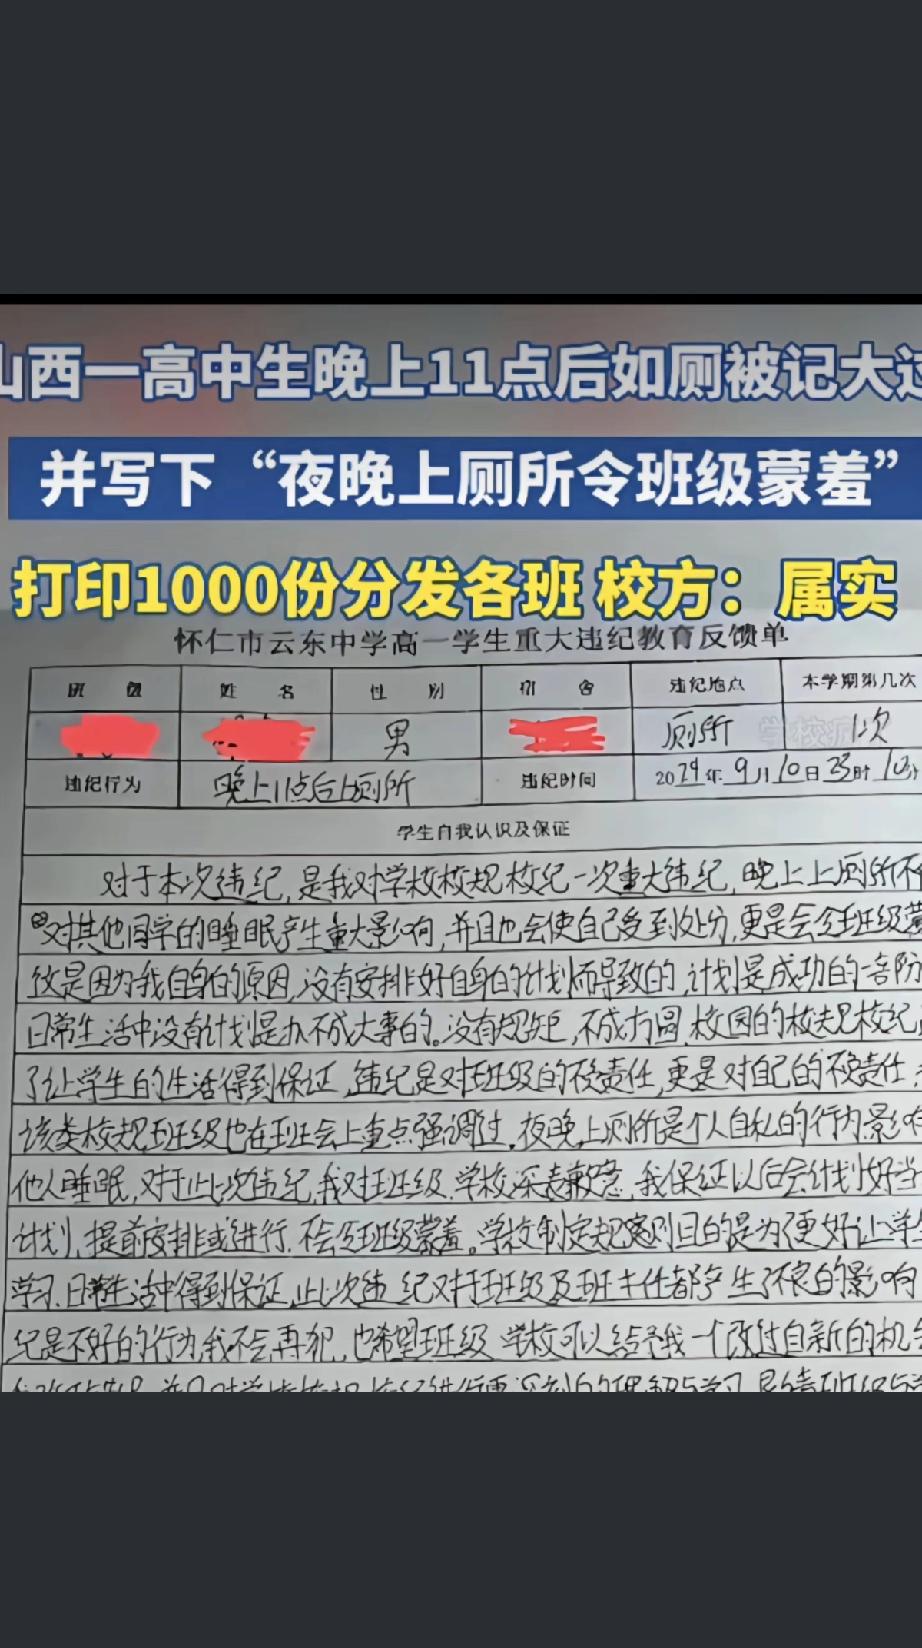 山西一高中生晚上11点后如厕被记大过
并写下“夜晚上厕所令班级蒙羞”
打印1000份分发各班 校方：属实
怀仁市云东中学高一学生重大违纪教育反馈单
班 级 姓 名 性 别 宿 舍 违纪地点 本学期第几次
男 厕所 1次
违纪行为 晚上11点后上厕所 违纪时间 2024年9月10日23时10分
学生自我认识及保证
对于本次违纪，是我对学校校规校纪一次重大违纪，晚上上厕所不
对其他同学的睡眠产生重大影响，并且也会使自己受到处分，更是会令班级蒙
这是因为我自身的原因，没有安排好自身的计划而导致的，计划是成功的一部
日常生活中没有计划是办不成大事的。没有规矩，不成方圆，校园的校规校纪
了让学生的生活得到保证，违纪是对班级的不负责任，更是对自己的不负责任
该类校规班级也在班会上重点强调过，夜晚上厕所是个人自私的行为，影响
他人睡眠，对于此次违纪，我对班级、学校深表歉意，我保证以后会计划好当
计划，提前安排或进行，不会令班级蒙羞。学校制定规章 目的是为了更好让学生
学习、日常生活中得到保证，此次违纪对于班级及班主任都产生了不良的影响
纪是不好的行为，我不会再犯，也希望班级、学校可以给予我一个改过自新的机会